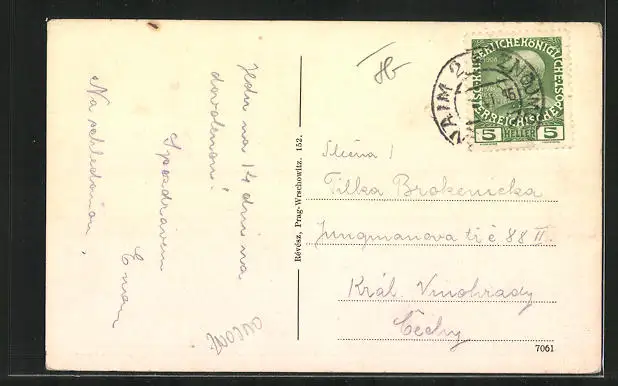 Jedu na 14 dní na
dovolenou!
S pozdravem
Na shledanou,
Révész, Prag-Wrschowitz. 152.
KAISERLICHE KÖNIGLICHE
ÖSTERREICHISCHE POST
1908
5 HELLER 5
ZNAIM 2 ZNOJMO
Slečna
Tilka Brokenicka
Jungmanova tř. č 88 II.
Král. Vinohrady
Čechy
7061